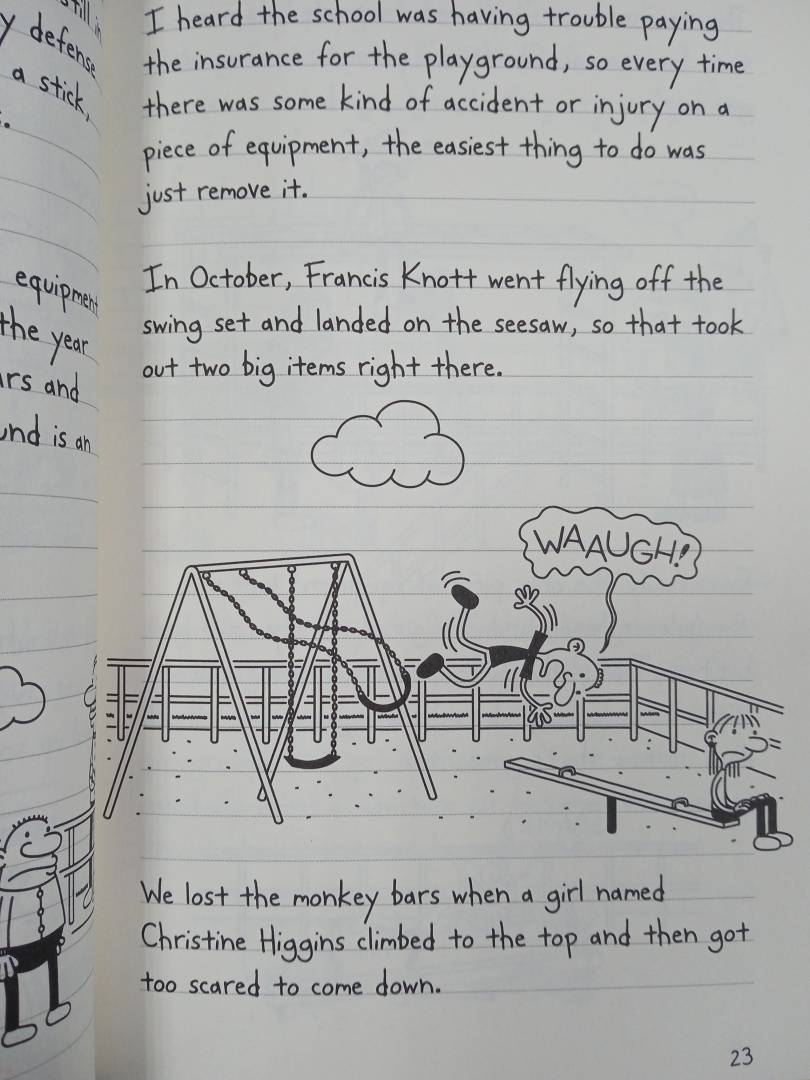 y defense
a stick,
equipment
the year
and
is an
I heard the school was having trouble paying
the insurance for the playground, so every time
there was some kind of accident or injury on a
piece of equipment, the easiest thing to do was
just remove it.
In October, Francis Knott went flying off the
swing set and landed on the seesaw, so that took
out two big items right there.
WAAUGH!
We lost the monkey bars when a girl named
Christine Higgins climbed to the top and then got
too scared to come down.
23